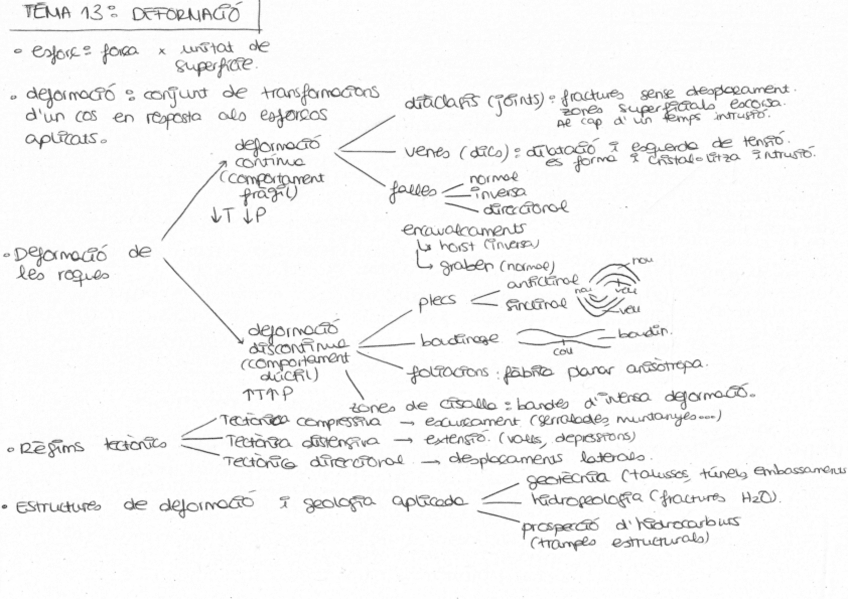 TEMA 13: DEFORMACIÓ
• esforç: força x unitat de
superfície.
• deformació: conjunt de transformacions
d'un cos en resposta als esforços
aplicats.
• Deformació de
les roques
deformació
contínua
(comportament
fràgil)
↓T ↓P
diàclasis (joints): fractures sense desplaçament.
zones superficials escorça.
Al cap d'un temps intrusió.
venes (dics): dilatació i esquerda de tensió.
es forma i cristal·litza intrusió.
falles
normal
inversa
direccional
encavalcaments
↳ horst (inversa)
↳ graben (normal)
deformació
discontínua
(comportament
dúctil)
↑T↑P
plecs
anticlinal
sinclinal
nou
vell
nou
vell
boudinage
boudin.
coll
foliacions: fàbrica planar anisòtropa.
zones de cisalla: bandes d'intensa deformació.
• Règims tectònics
Tectònica compressiva → escurçament (serralades, muntanyes...)
Tectònica distensiva → extensió. (valls, depressions)
Tectònica direccional → desplaçaments laterals.
• Estructures de deformació i geologia aplicada
geotècnia (talussos, túnels, embassaments
hidrogeologia (fractures H2O).
prospecció d'hidrocarburs
(trampes estructurals)